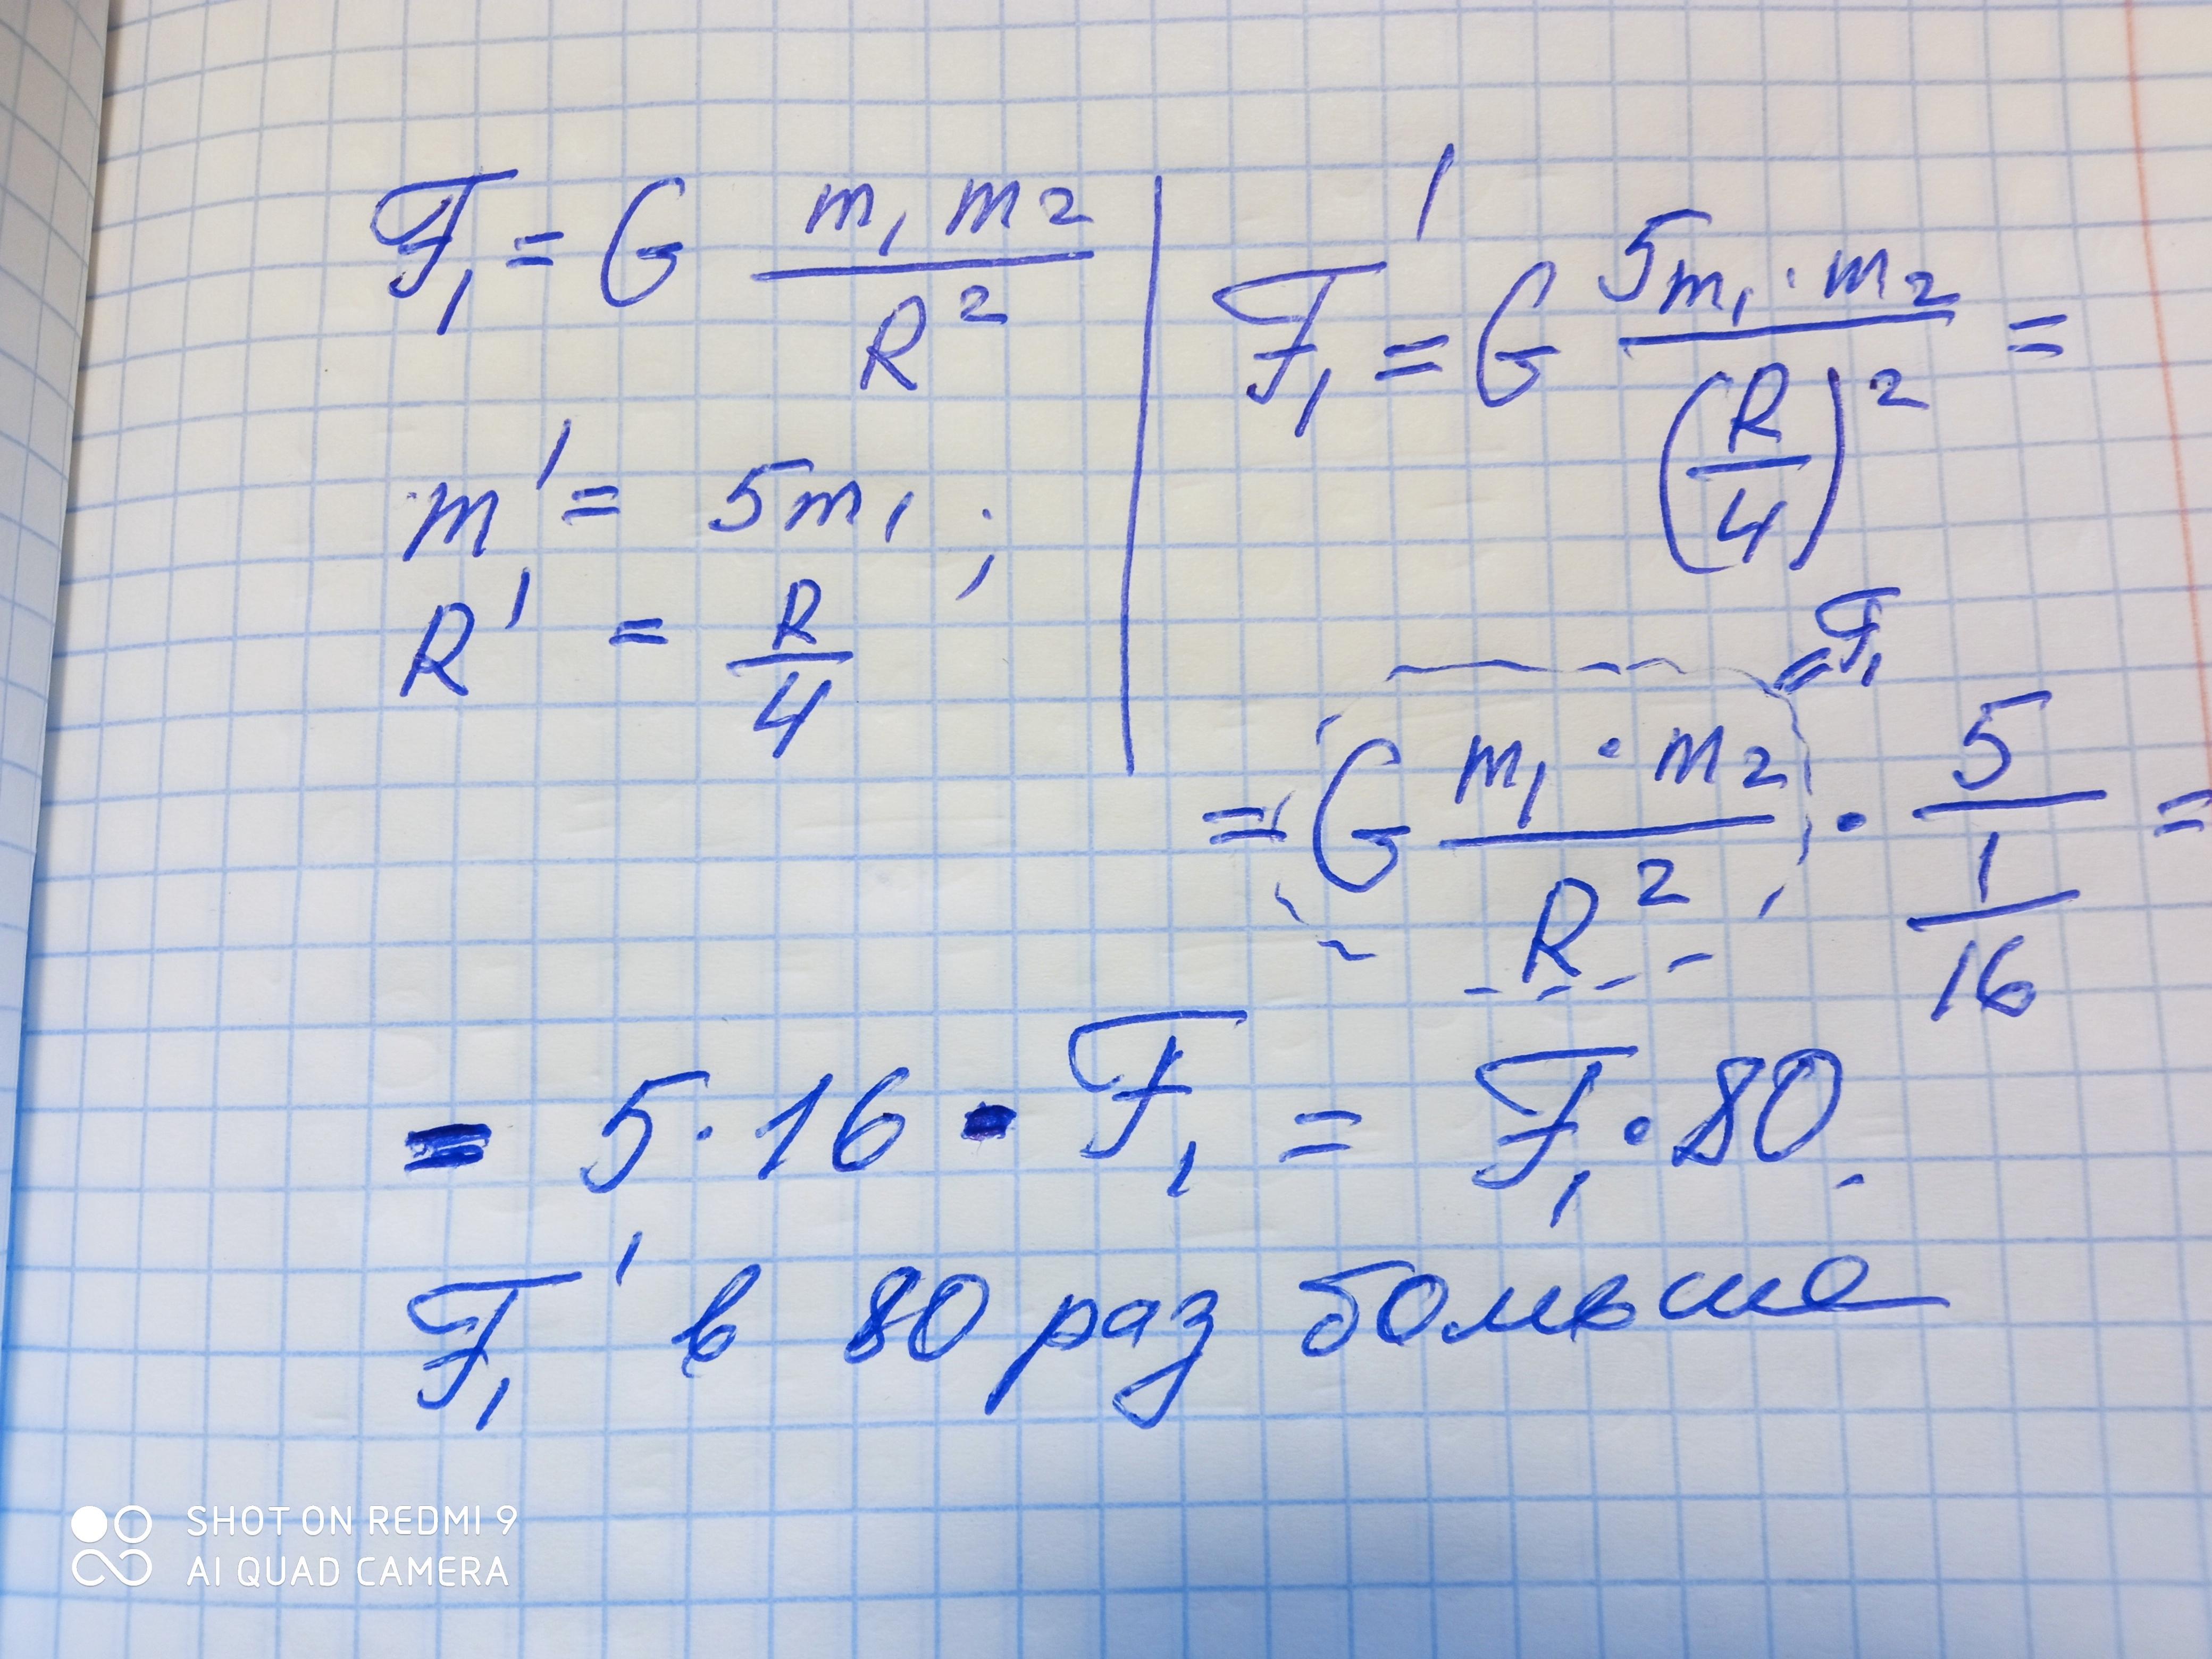 F₁ = G m₁ m₂ / R²
m₁' = 5m₁;
R' = R/4
F₁' = G 5m₁·m₂ / (R/4)² =
= F₁
= G m₁·m₂ / R² · 5 / (1/16) =
= 5·16·F₁ = F₁·80.
F₁' в 80 раз больше
SHOT ON REDMI 9
AI QUAD CAMERA